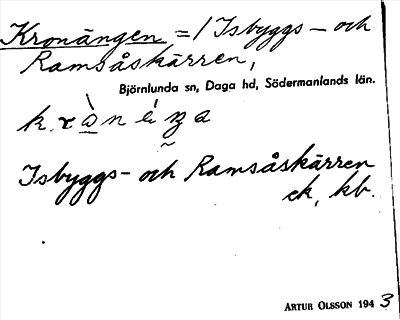 Kronängen = / Isbyggs- och
Ramsåskärren,
Björnlunda sn, Daga hd, Södermanlands län.
Isbyggs- och Ramsåskärren
ek, kb.
ARTUR OLSSON 1943